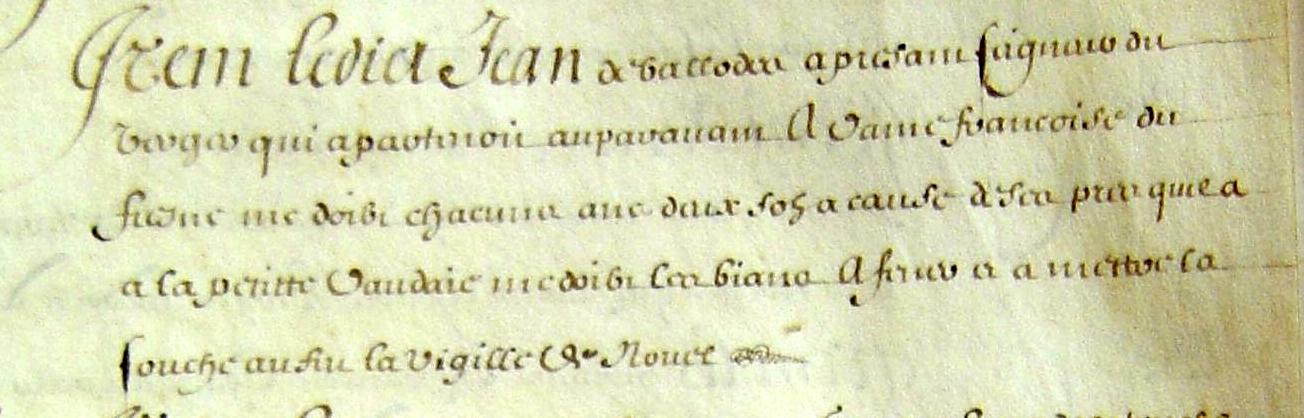 Item ledict Jean de vallodee apresant seigneur du
verger qui apartenoit auparavant A Dame francoise du
fresne me doibt chacun an deux sols a cause des prez quil a
a la petitte Vaudaie me doibt les bians A fener et a mettre la
souche au feu la vigille de Nouel